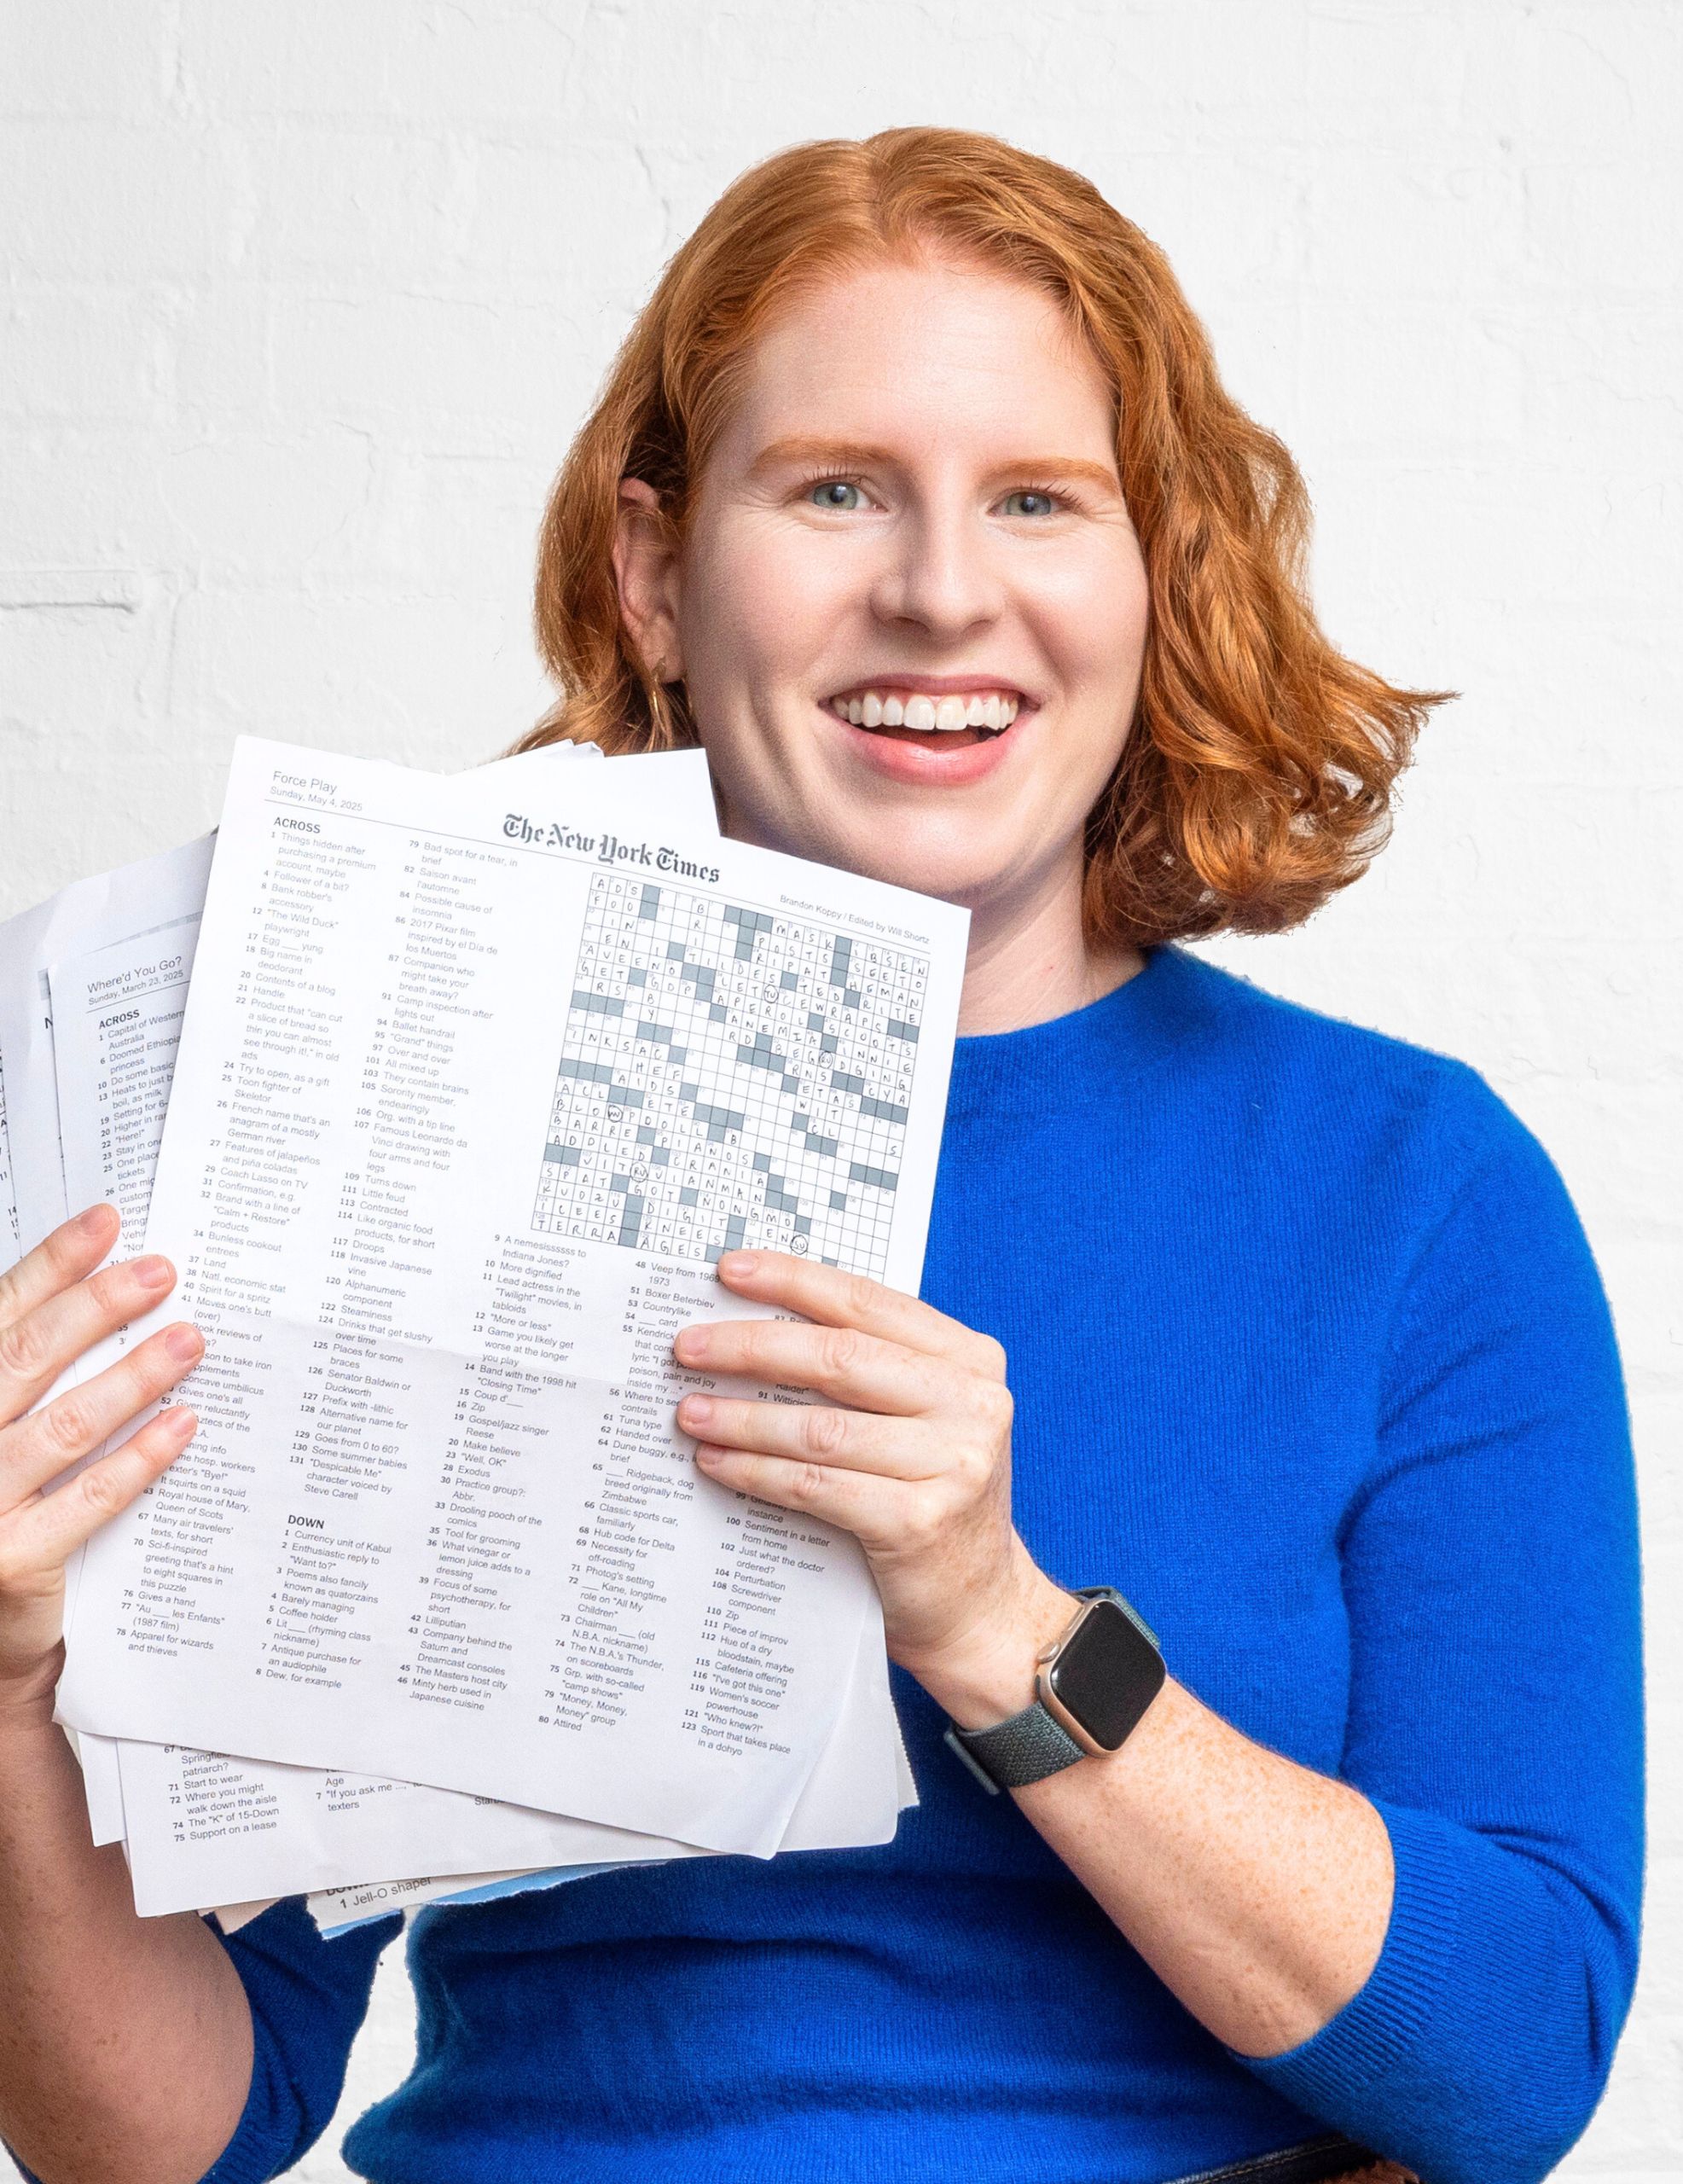 Force Play
Sunday, May 4, 2025
The New York Times
Brandon Koppy / Edited by Will Shortz
ACROSS
1 Things hidden after
purchasing a premium
account, maybe
4 Follower of a bit?
8 Bank robber's
accessory
12 "The Wild Duck"
playwright
17 Egg ___ yung
18 Big name in
deodorant
20 Contents of a blog
21 Handle
22 Product that "can cut
a slice of bread so
thin you can almost
see through it!," in old
ads
24 Try to open, as a gift
25 Toon fighter of
Skeletor
26 French name that's an
anagram of a mostly
German river
27 Features of jalapeños
and piña coladas
29 Coach Lasso on TV
31 Confirmation, e.g.
32 Brand with a line of
"Calm + Restore"
products
34 Bunless cookout
entrees
37 Land
38 Natl. economic stat
40 Spirit for a spritz
41 Moves one's butt
(over)
Book reviews of
son to take iron
pplements
Concave umbilicus
Gives one's all
52 Given reluctantly
Aztecs of the
.A.
ning info
me hosp. workers
exter's "Bye!"
It squirts on a squid
63 Royal house of Mary,
Queen of Scots
67 Many air travelers'
texts, for short
70 Sci-fi-inspired
greeting that's a hint
to eight squares in
this puzzle
76 Gives a hand
77 "Au ___ les Enfants"
(1987 film)
78 Apparel for wizards
and thieves
79 Bad spot for a tear, in
brief
82 Saison avant
l'automne
84 Possible cause of
insomnia
86 2017 Pixar film
inspired by el Día de
los Muertos
87 Companion who
might take your
breath away?
91 Camp inspection after
lights out
94 Ballet handrail
95 "Grand" things
97 Over and over
101 All mixed up
103 They contain brains
105 Sorority member,
endearingly
106 Org. with a tip line
107 Famous Leonardo da
Vinci drawing with
four arms and four
legs
109 Turns down
111 Little feud
113 Contracted
114 Like organic food
products, for short
117 Droops
118 Invasive Japanese
vine
120 Alphanumeric
component
122 Steaminess
124 Drinks that get slushy
over time
125 Places for some
braces
126 Senator Baldwin or
Duckworth
127 Prefix with -lithic
128 Alternative name for
our planet
129 Goes from 0 to 60?
130 Some summer babies
131 "Despicable Me"
character voiced by
Steve Carell
DOWN
1 Currency unit of Kabul
2 Enthusiastic reply to
"Want to?"
3 Poems also fancily
known as quatorzains
4 Barely managing
5 Coffee holder
6 Lit ___ (rhyming class
nickname)
7 Antique purchase for
an audiophile
8 Dew, for example
9 A nemesisssssss to
Indiana Jones?
10 More dignified
11 Lead actress in the
"Twilight" movies, in
tabloids
12 "More or less"
13 Game you likely get
worse at the longer
you play
14 Band with the 1998 hit
"Closing Time"
15 Coup d'___
16 Zip
19 Gospel/jazz singer
Reese
20 Make believe
23 "Well, OK"
28 Exodus
30 Practice group?:
Abbr.
33 Drooling pooch of the
comics
35 Tool for grooming
36 What vinegar or
lemon juice adds to a
dressing
39 Focus of some
psychotherapy, for
short
42 Lilliputian
43 Company behind the
Saturn and
Dreamcast consoles
45 The Masters host city
46 Minty herb used in
Japanese cuisine
48 Veep from 1969
1973
51 Boxer Beterbiev
53 Countrylike
54 ___ card
55 Kendrick
that com
lyric "I got p
poison, pain and joy
inside my ..."
56 Where to see
contrails
61 Tuna type
62 Handed over
64 Dune buggy, e.g., i
brief
65 ___ Ridgeback, dog
breed originally from
Zimbabwe
66 Classic sports car,
familiarly
68 Hub code for Delta
69 Necessity for
off-roading
71 Photog's setting
72 ___ Kane, longtime
role on "All My
Children"
73 Chairman ___ (old
N.B.A. nickname)
74 The N.B.A.'s Thunder,
on scoreboards
75 Grp. with so-called
"camp shows"
79 "Money, Money,
Money" group
80 Attired
Raider"
91 Witticis
instance
100 Sentiment in a letter
from home
102 Just what the doctor
ordered?
104 Perturbation
108 Screwdriver
component
110 Zip
111 Piece of improv
112 Hue of a dry
bloodstain, maybe
115 Cafeteria offering
116 "I've got this one"
119 Women's soccer
powerhouse
121 "Who knew?!"
123 Sport that takes place
in a dohyo
Where'd You Go?
Sunday, March 23, 2025
ACROSS
1 Capital of Western
Australia
6 Doomed Ethiopia
princess
10 Do some basic
13 Heats to just b
boil, as milk
19 Setting for 6-
20 Higher in ra
22 "Here!"
23 Stay in one
25 One place
tickets
26 One mig
custom
Target
Bring
Vehi
"No
67
Springfie
patriarch?
71 Start to wear
72 Where you might
walk down the aisle
74 The "K" of 15-Down
75 Support on a lease
Age
7 "If you ask me ...,"
texters
1 Jell-O shaper